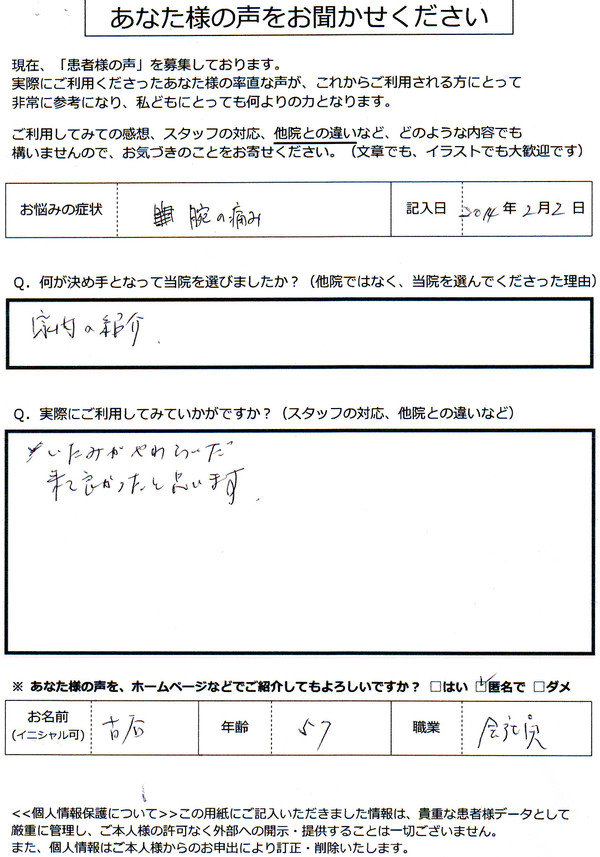 あなた様の声をお聞かせください
現在、「患者様の声」を募集しております。
実際にご利用くださったあなた様の率直な声が、これからご利用される方にとって
非常に参考になり、私どもにとっても何よりの力となります。
ご利用してみての感想、スタッフの対応、他院との違いなど、どのような内容でも
構いませんので、お気づきのことをお寄せください。（文章でも、イラストでも大歓迎です）
お悩みの症状 腕の痛み 記入日 2014年2月2日
Q．何が決め手となって当院を選びましたか？（他院ではなく、当院を選んでくださった理由）
家内の紹介.
Q．実際にご利用してみていかがですか？（スタッフの対応、他院との違いなど）
いたみがやわらいだ
来て良かったと思います.
※ あなた様の声を、ホームページなどでご紹介してもよろしいですか？ □はい ☑匿名で □ダメ
お名前 年齢 57 職業 会社員
(イニシャル可)
<<個人情報保護について>>この用紙にご記入いただきました情報は、貴重な患者様データとして
厳重に管理し、ご本人様の許可なく外部への開示・提供することは一切ございません。
また、個人情報はご本人様からのお申出により訂正・削除いたします。